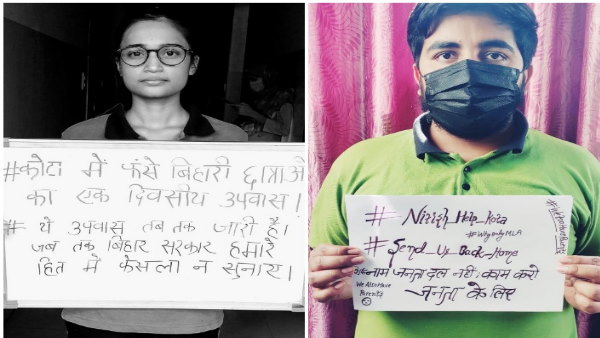 #कोटा में फंसे बिहारी छात्राओ
का एक दिवसीय उपवास।
# ये उपवास तब तक जारी है।
जब तक बिहार सरकार हमारे
हित में फेसला न सुनाए।
# Nitish_Help_Kota
#WhyonlyMLA
# Send_Us_Back_Home
नाम जनता दल नहीं, काम करो
We Also Have
Parents
जनता के लिए